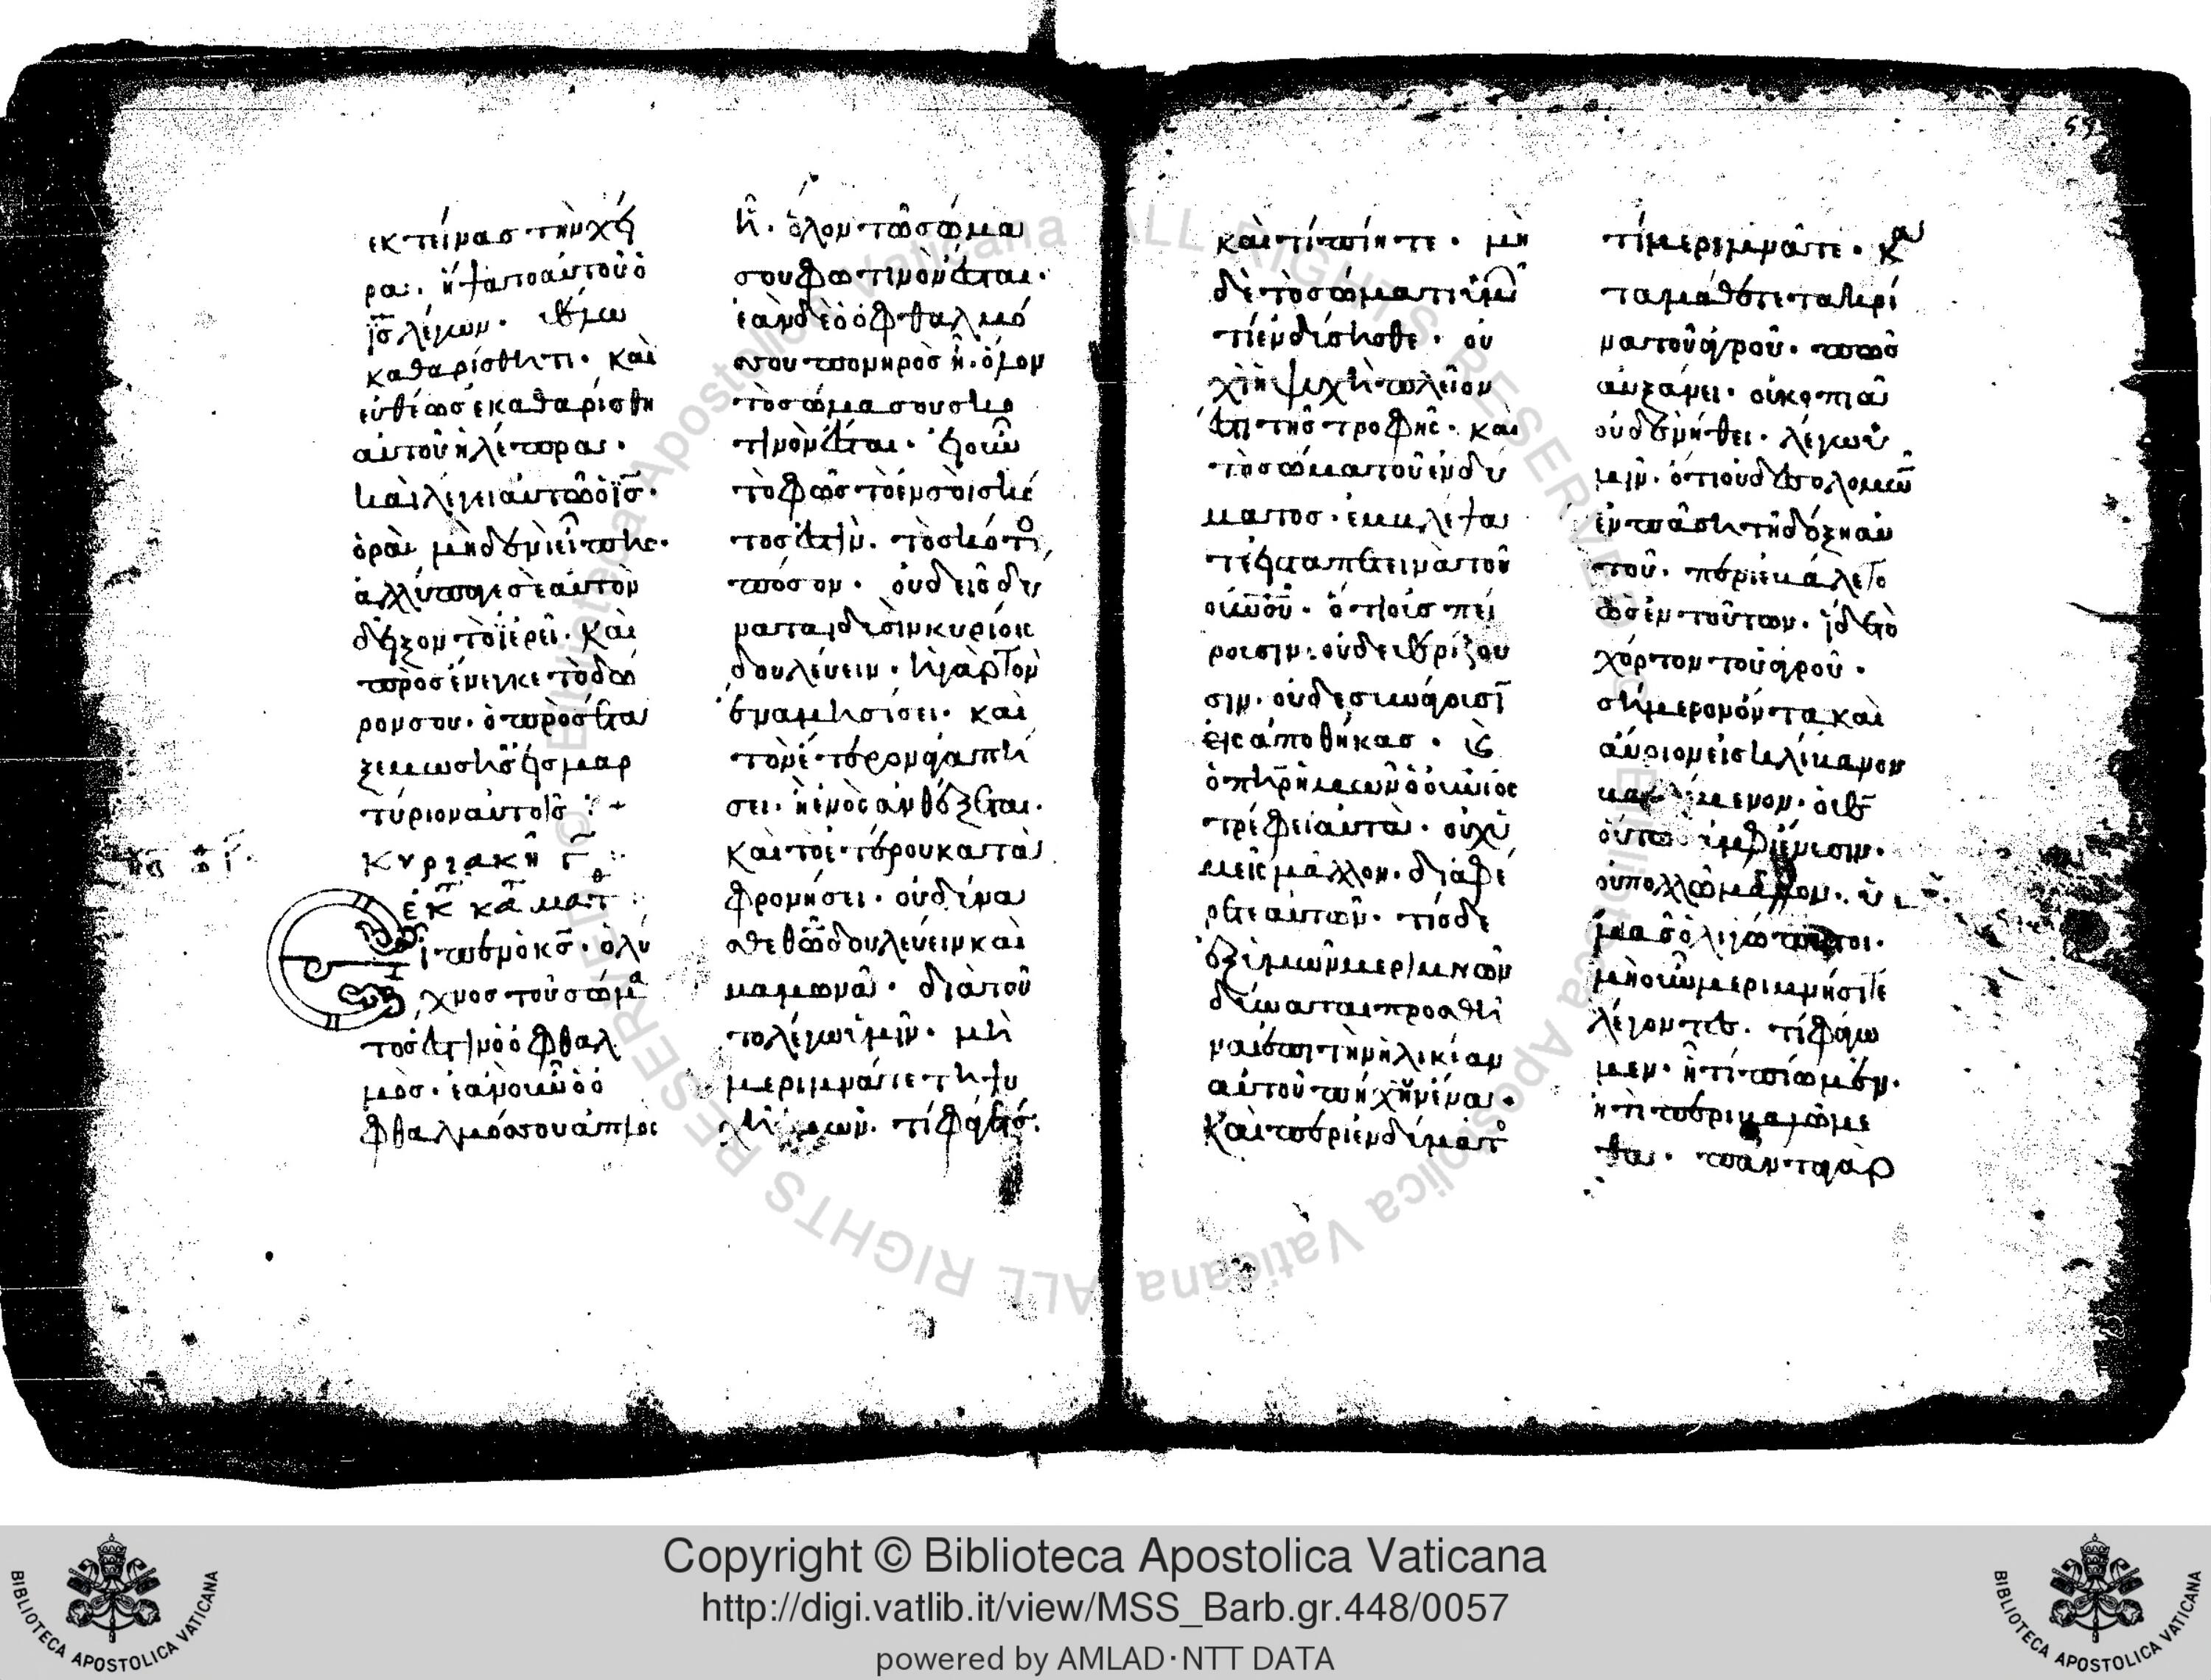 εκτείνας τὴν χεῖ
ρα· ἥψατο αὐτοῦ ὁ
ις λέγων· θέλω
καθαρίσθητι· καὶ
εὐθέως ἐκαθαρίσθη
αὐτοῦ ἡ λέπρα·
καὶ λέγει αὐτῶ ὁ ις·
ὅρα μηδενὶ εἴπης·
ἀλλ' ὕπαγε σεαυτὸν
δεῖξον τῷ ἱερεῖ· καὶ
προσένεγκε τὸ δῶ
ρον σου· ὃ προσέτα
ξε μωσῆς εἰς μαρ
τύριον αὐτοῖς
κυριακὴ γ
ἐκ κατὰ ματθ
Εἶπεν ὁ κς· ὁ λύ
χνος τοῦ σώμα
τός ἐστιν ὁ ὀφθαλ
μός· ἐὰν οὖν ὁ ὀ
φθαλμός σου ἁπλοῦς
ἦ· ὅλον τὸ σῶμα
σου φωτινὸν ἔσται·
ἐὰν δὲ ὁ ὀφθαλμό
ς σου πονηρὸς ἦ· ὅλον
τὸ σῶμα σου σκο
τινὸν ἔσται· εἰ οὖν
τὸ φῶς τὸ ἐν σοὶ σκό
τος ἐστίν· τὸ σκότος
πόσον· οὐδεὶς δύ
ναται δυσὶν κυρίοις
δουλεύειν· ἢ γὰρ τὸν
ἕνα μισήσει· καὶ
τὸν ἕτερον ἀγαπή
σει· ἢ ἑνὸς ἀνθέξεται·
καὶ τοῦ ἑτέρου κατα
φρονήσει· οὐ δύνα
σθε θῶ δουλεύειν καὶ
μαμωνᾶ· διὰ τοῦ
το λέγω ὑμῖν· μὴ
μεριμνᾶτε τῆ ψυ
χῆ ὑμῶν· τί φάγητε·
καὶ τί πίητε· μη
δὲ τῶ σώματι ὑμῶν
τί ἐνδύσησθε· οὐ
χὶ ἡ ψυχὴ πλεῖον
ἐστι τῆς τροφῆς· καὶ
τὸ σῶμα τοῦ ἐνδύ
ματος· ἐμβλέψα
τε εἰς τὰ πετεινὰ τοῦ
οὐνοῦ· ὅτι οὐ σπεί
ρουσιν· οὐδὲ θερίζου
σιν· οὐδὲ συνάγουσιν
εἰς ἀποθήκας· καὶ
ὁ πηρ ὑμῶν ὁ οὐνιος
τρέφει αὐτά· οὐχ ὑ
μεῖς μᾶλλον διαφέ
ρετε αὐτῶν· τίς δὲ
ἐξ ὑμῶν μεριμνῶν
δύναται προσθεῖ
ναι ἐπὶ τὴν ἡλικίαν
αὐτοῦ πῆχυν ἕνα·
καὶ περὶ ἐνδύματος
τί μεριμνᾶτε· κα
ταμάθετε τὰ κρί
να τοῦ ἀγροῦ· πῶς
αὐξάνει· οὐ κοπιᾶ
οὐδὲ νήθει· λέγω ὑ
μῖν· ὅτι οὐδὲ σολομῶν
ἐν πάση τῆ δόξη αὐ
τοῦ· περιεβάλετο
ὡς ἓν τούτων· ἰδὲ τὸ
χόρτον τοῦ ἀγροῦ·
σήμερον ὄντα καὶ
αὔριον εἰς κλίβανον
ὁ θς
οὕτως ἀμφιέννυσιν·
οὐ πολλῶ μᾶλλον· ὑ
μᾶς ὀλιγόπιστοι·
μὴ οὖν μεριμνήσητε
λέγοντες· τί φάγω
μεν· ἢ τί πίωμεν·
ἢ τί περιβαλώμε
θα· πάντα γὰρ
59
Copyright © Biblioteca Apostolica Vaticana
http://digi.vatlib.it/view/MSS_Barb.gr.448/0057
powered by AMLAD·NTT DATA
BIBLIOTECA APOSTOLICA VATICANA
BIBLIOTECA APOSTOLICA VATICANA